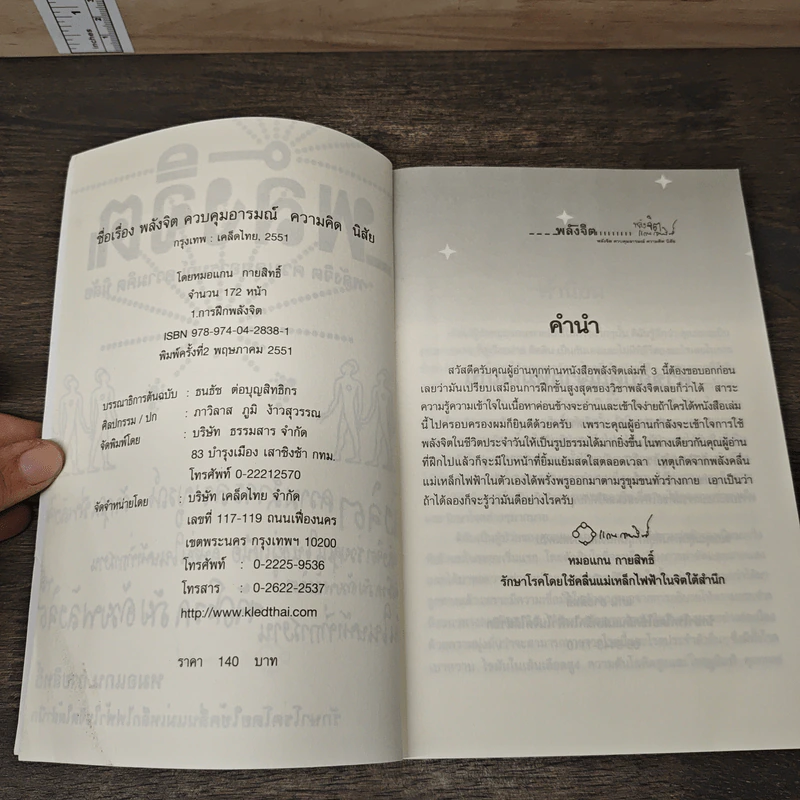 ชื่อเรื่อง พลังจิต ควบคุมอารมณ์ ความคิด นิสัย
กรุงเทพ : เคล็ดไทย, 2551
โดยหมอแกน กายสิทธิ์
จำนวน 172 หน้า
1.การฝึกพลังจิต
ISBN 978-974-04-2838-1
พิมพ์ครั้งที่2 พฤษภาคม 2551
บรรณาธิการต้นฉบับ : ธนธัช ต่อบุญสิทธิกร
ศิลปกรรม / ปก : ภาวิลาส ภูมิ ง้าวสุวรรณ
จัดพิมพ์โดย : บริษัท ธรรมสาร จำกัด
83 บำรุงเมือง เสาชิงช้า กทม.
โทรศัพท์ 0-22212570
จัดจำหน่ายโดย : บริษัท เคล็ดไทย จำกัด
เลขที่ 117-119 ถนนเฟื่องนคร
เขตพระนคร กรุงเทพฯ 10200
โทรศัพท์ : 0-2225-9536
โทรสาร : 0-2622-2537
http://www.kledthai.com
ราคา 140 บาท
พลังจิต
พลังจิต ควบคุมอารมณ์ ความคิด นิสัย
คำนำ
สวัสดีครับคุณผู้อ่านทุกท่านหนังสือพลังจิตเล่มที่ 3 นี้ต้องขอบอกก่อน
เลยว่ามันเปรียบเสมือนการฝึกขั้นสูงสุดของวิชาพลังจิตเลยก็ว่าได้ สาระ
ความรู้ความเข้าใจในเนื้อหาค่อนข้างจะอ่านและเข้าใจง่ายถ้าใครได้หนังสือเล่ม
นี้ไปครอบครองผมก็ยินดีด้วยครับ เพราะคุณผู้อ่านกำลังจะเข้าใจการใช้
พลังจิตในชีวิตประจำวันให้เป็นรูปธรรมได้มากยิ่งขึ้น ในทางเดียวกันคุณผู้อ่าน
ที่ฝึกไปแล้วก็จะมีใบหน้าที่ยิ้มแย้มสดใสตลอดเวลา เหตุเกิดจากพลังคลื่น
แม่เหล็กไฟฟ้าในตัวเองได้พรั่งพรูออกมาตามรูขุมขนทั่วร่างกาย เอาเป็นว่า
ถ้าได้ลองก็จะรู้ว่ามันดีอย่างไรครับ
หมอแกน กายสิทธิ์
รักษาโรคโดยใช้คลื่นแม่เหล็กไฟฟ้าในจิตใต้สำนึก
inches